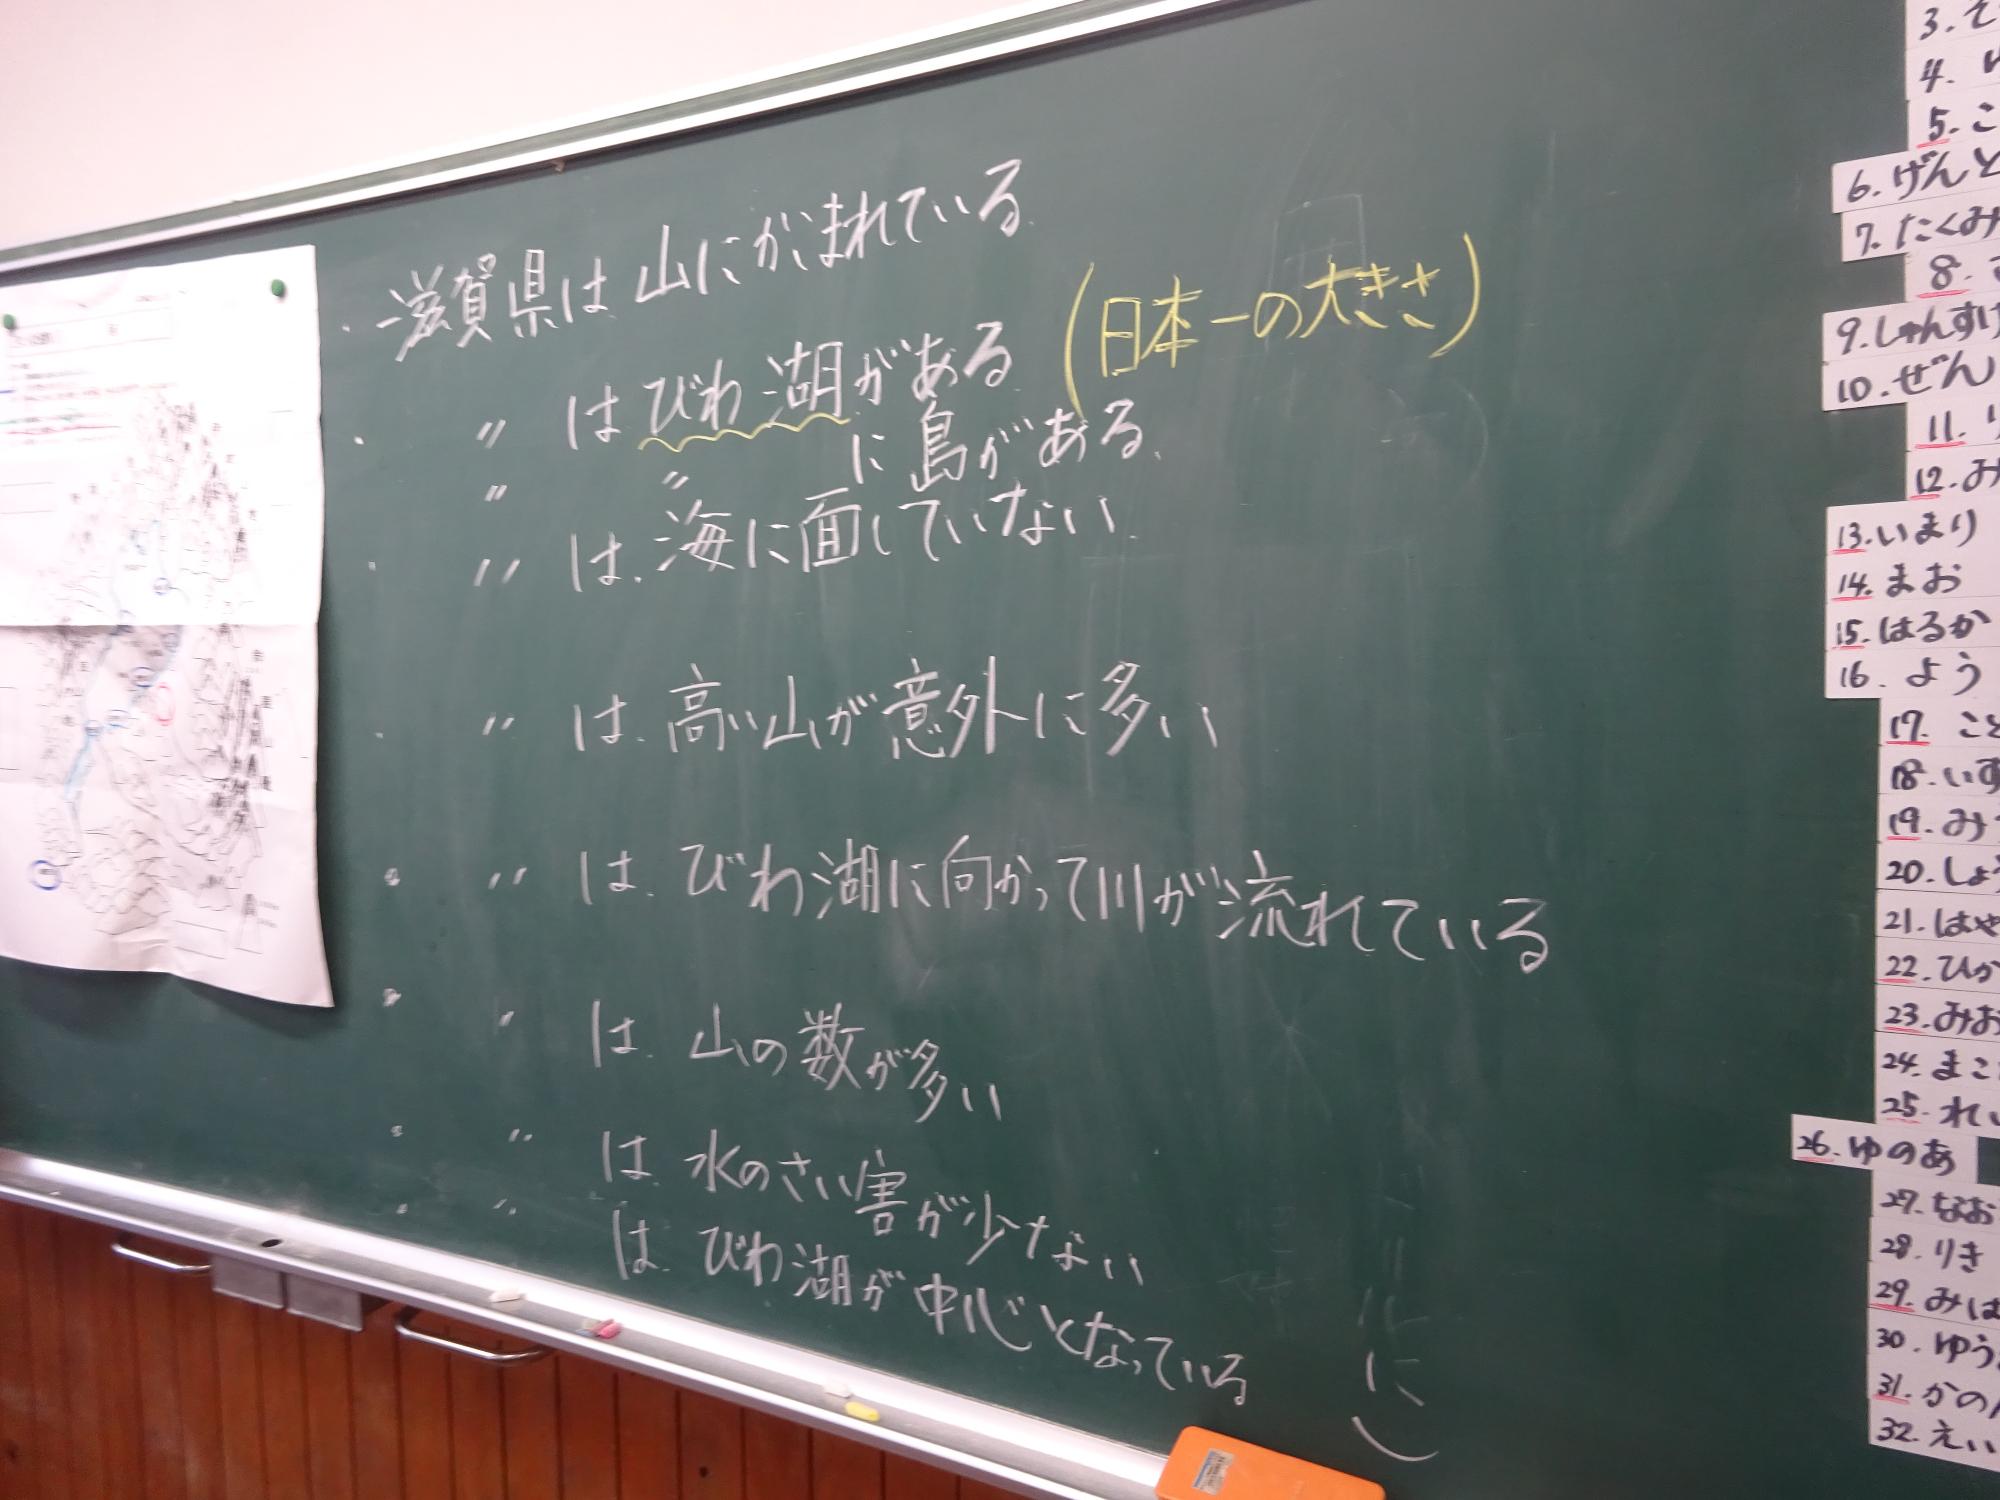 ・滋賀県は山にかこまれている
・〃はびわ湖がある(日本一の大きさ)
〃〃に島がある
・〃は海に面していない
・〃は高い山が意外に多い
・〃はびわ湖に向かって川が流れている
・〃は山の数が多い
・〃は水のさい害が少ない
・〃はびわ湖が中心となっている
3.
4.
5.こ
6.げんと
7.たくみ
8.
9.しゅんすけ
10.ぜん
11.り
12.み
13.いまり
14.まお
15.はるか
16.よう
17.こと
18.いす
19.み
20.しょう
21.はや
22.ひか
23.みお
24.まこ
25.れい
26.ゆのあ
27.なお
28.りき
29.みは
30.ゆう
31.かの
32.えい